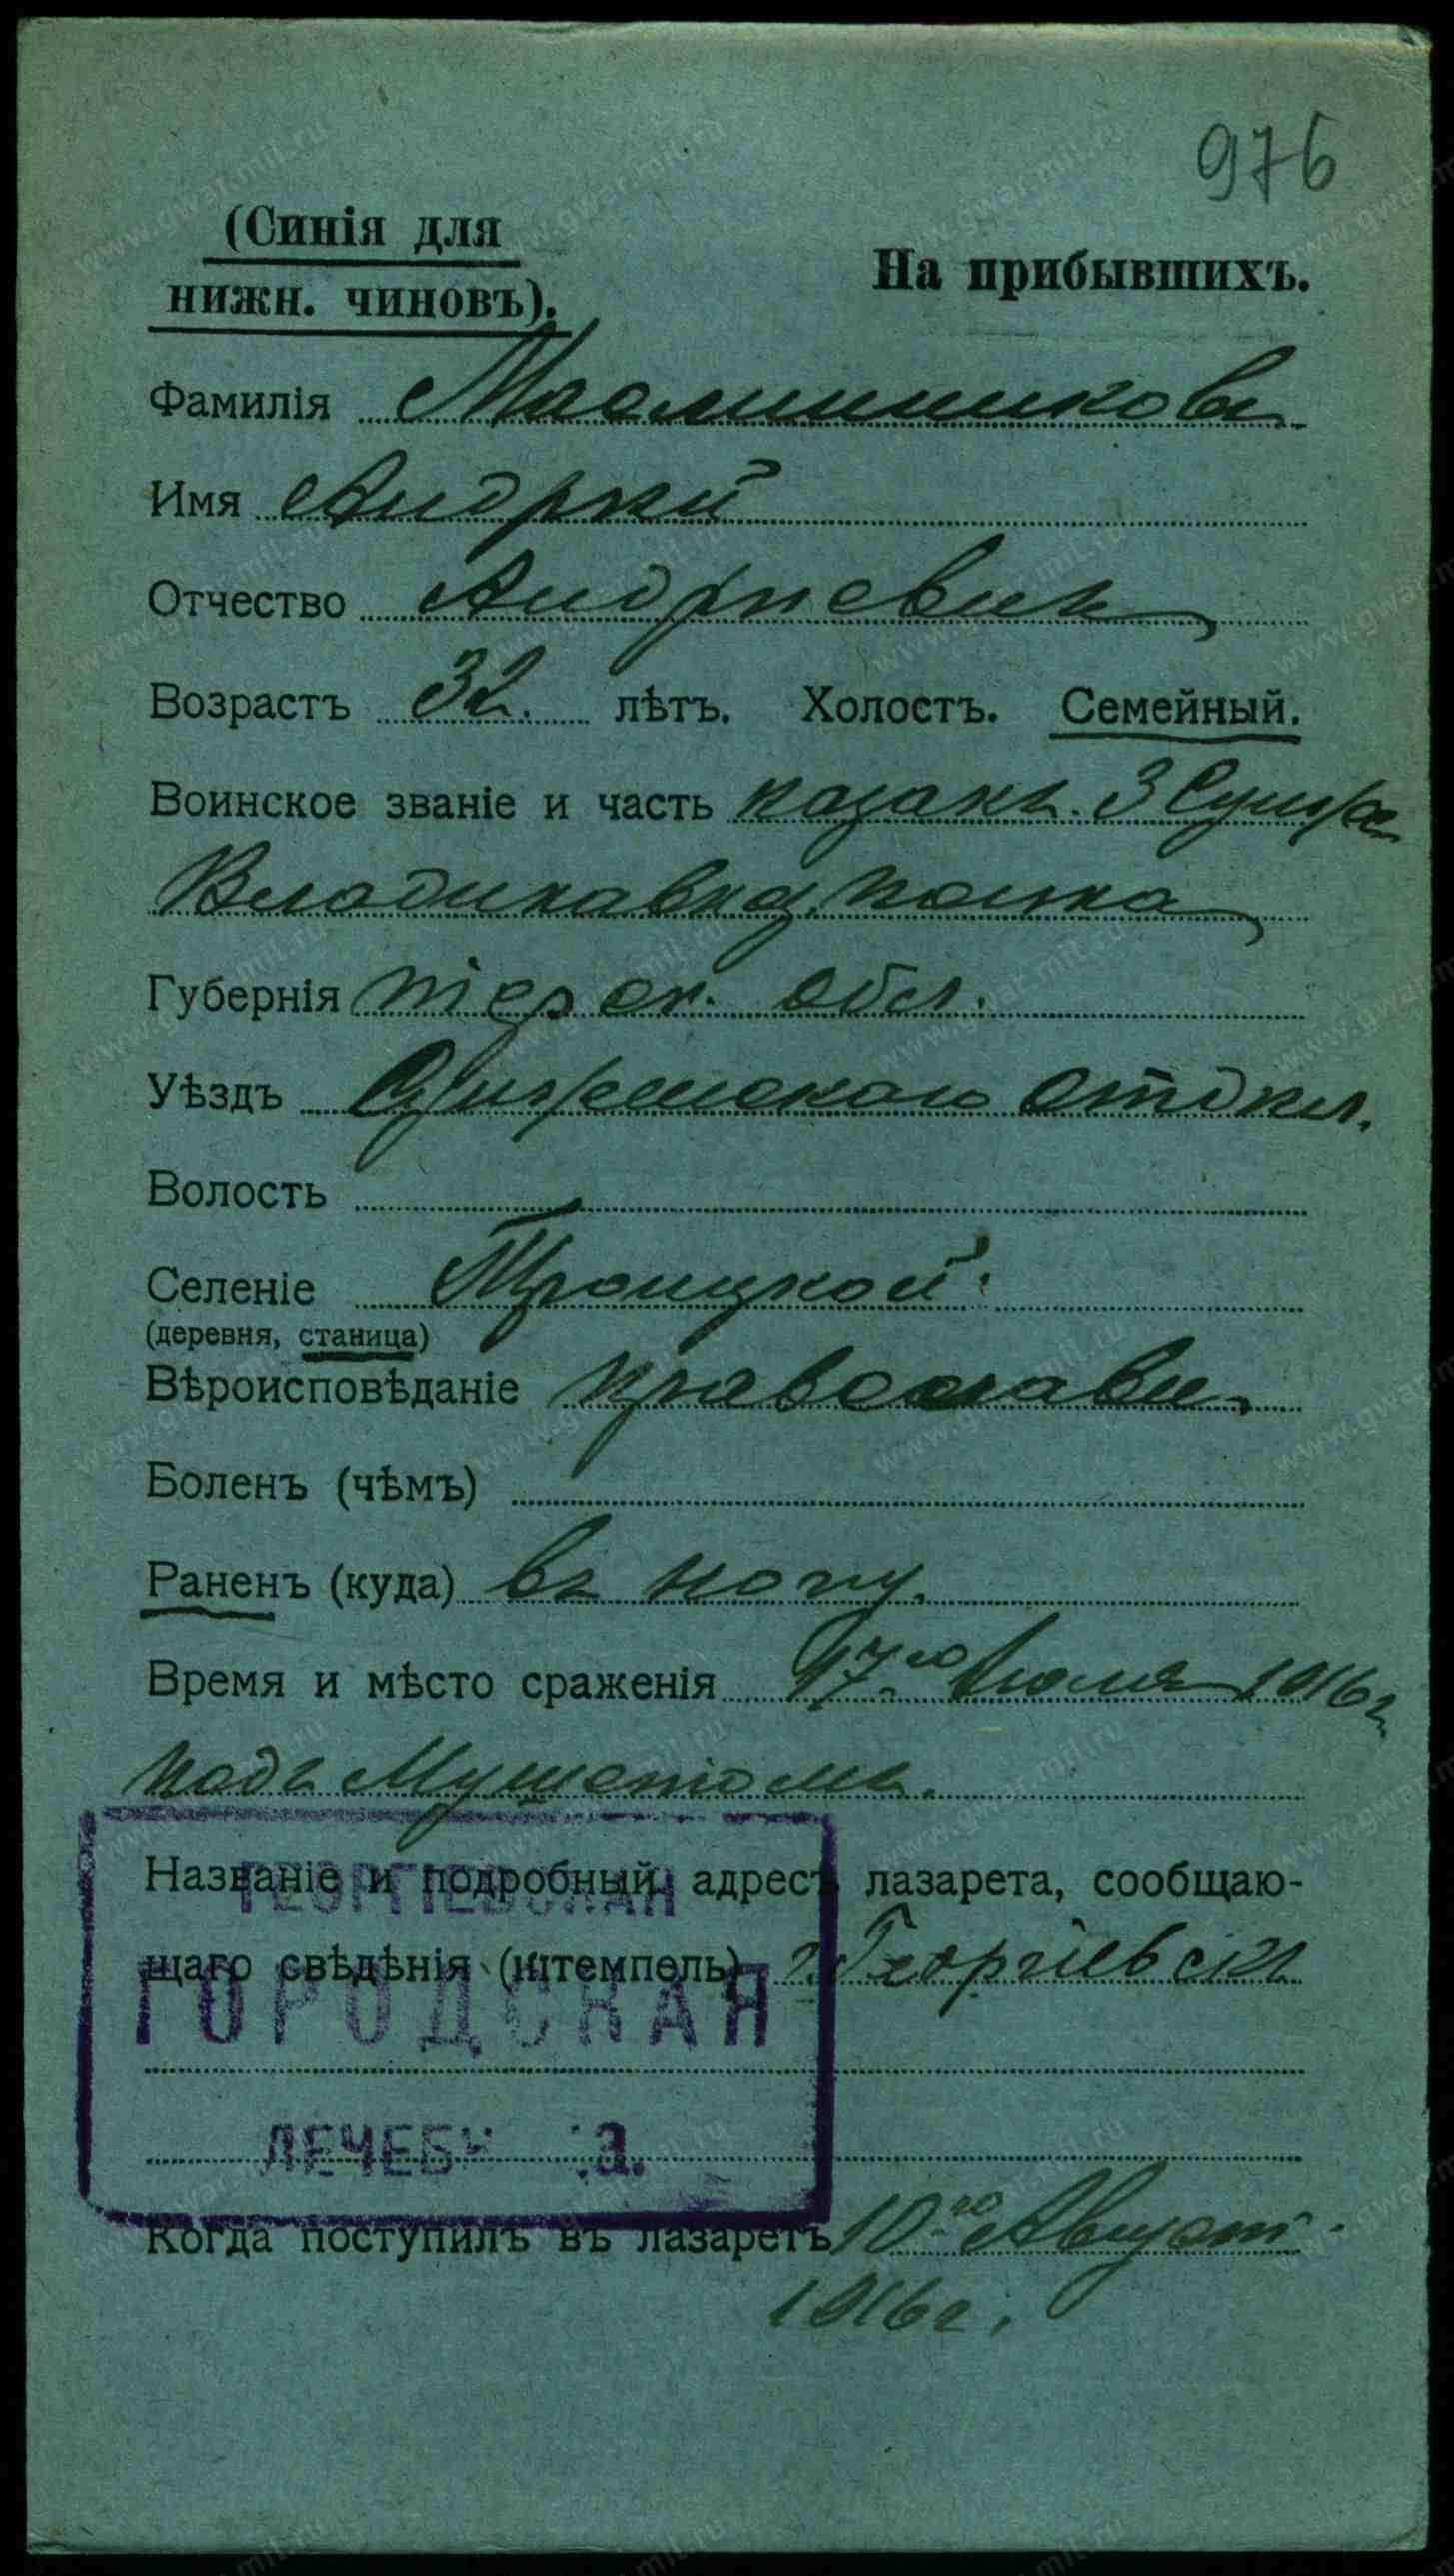 976
(Синія для
нижн. чиновъ).
На прибывшихъ.
Фамилія Маслинниковъ
Имя Андрѣй
Отчество Андрѣевичъ
Возрастъ 32. лѣтъ. Холостъ. Семейный.
Воинское званіе и часть казакъ. 3 Сунже-
Владикавказ. полка
Губернія Терск. обл.
Уѣздъ Сунженскаго Отдѣл.
Волость
Селеніе Троицкой
(деревня, станица)
Вѣроисповѣданіе православн.
Боленъ (чѣмъ)
Раненъ (куда) въ ногу.
Время и мѣсто сраженія 17го Іюля 1916г
подъ Мушетомъ.
Названіе и подробный адресъ лазарета, сообщаю-
ГЕОРГІЕВСКАЯ
щаго свѣдѣнія (штемпель) г. Георгіевскъ
ГОРОДСКАЯ
Когда поступилъ въ лазаретъ 10го Август.
1916г.